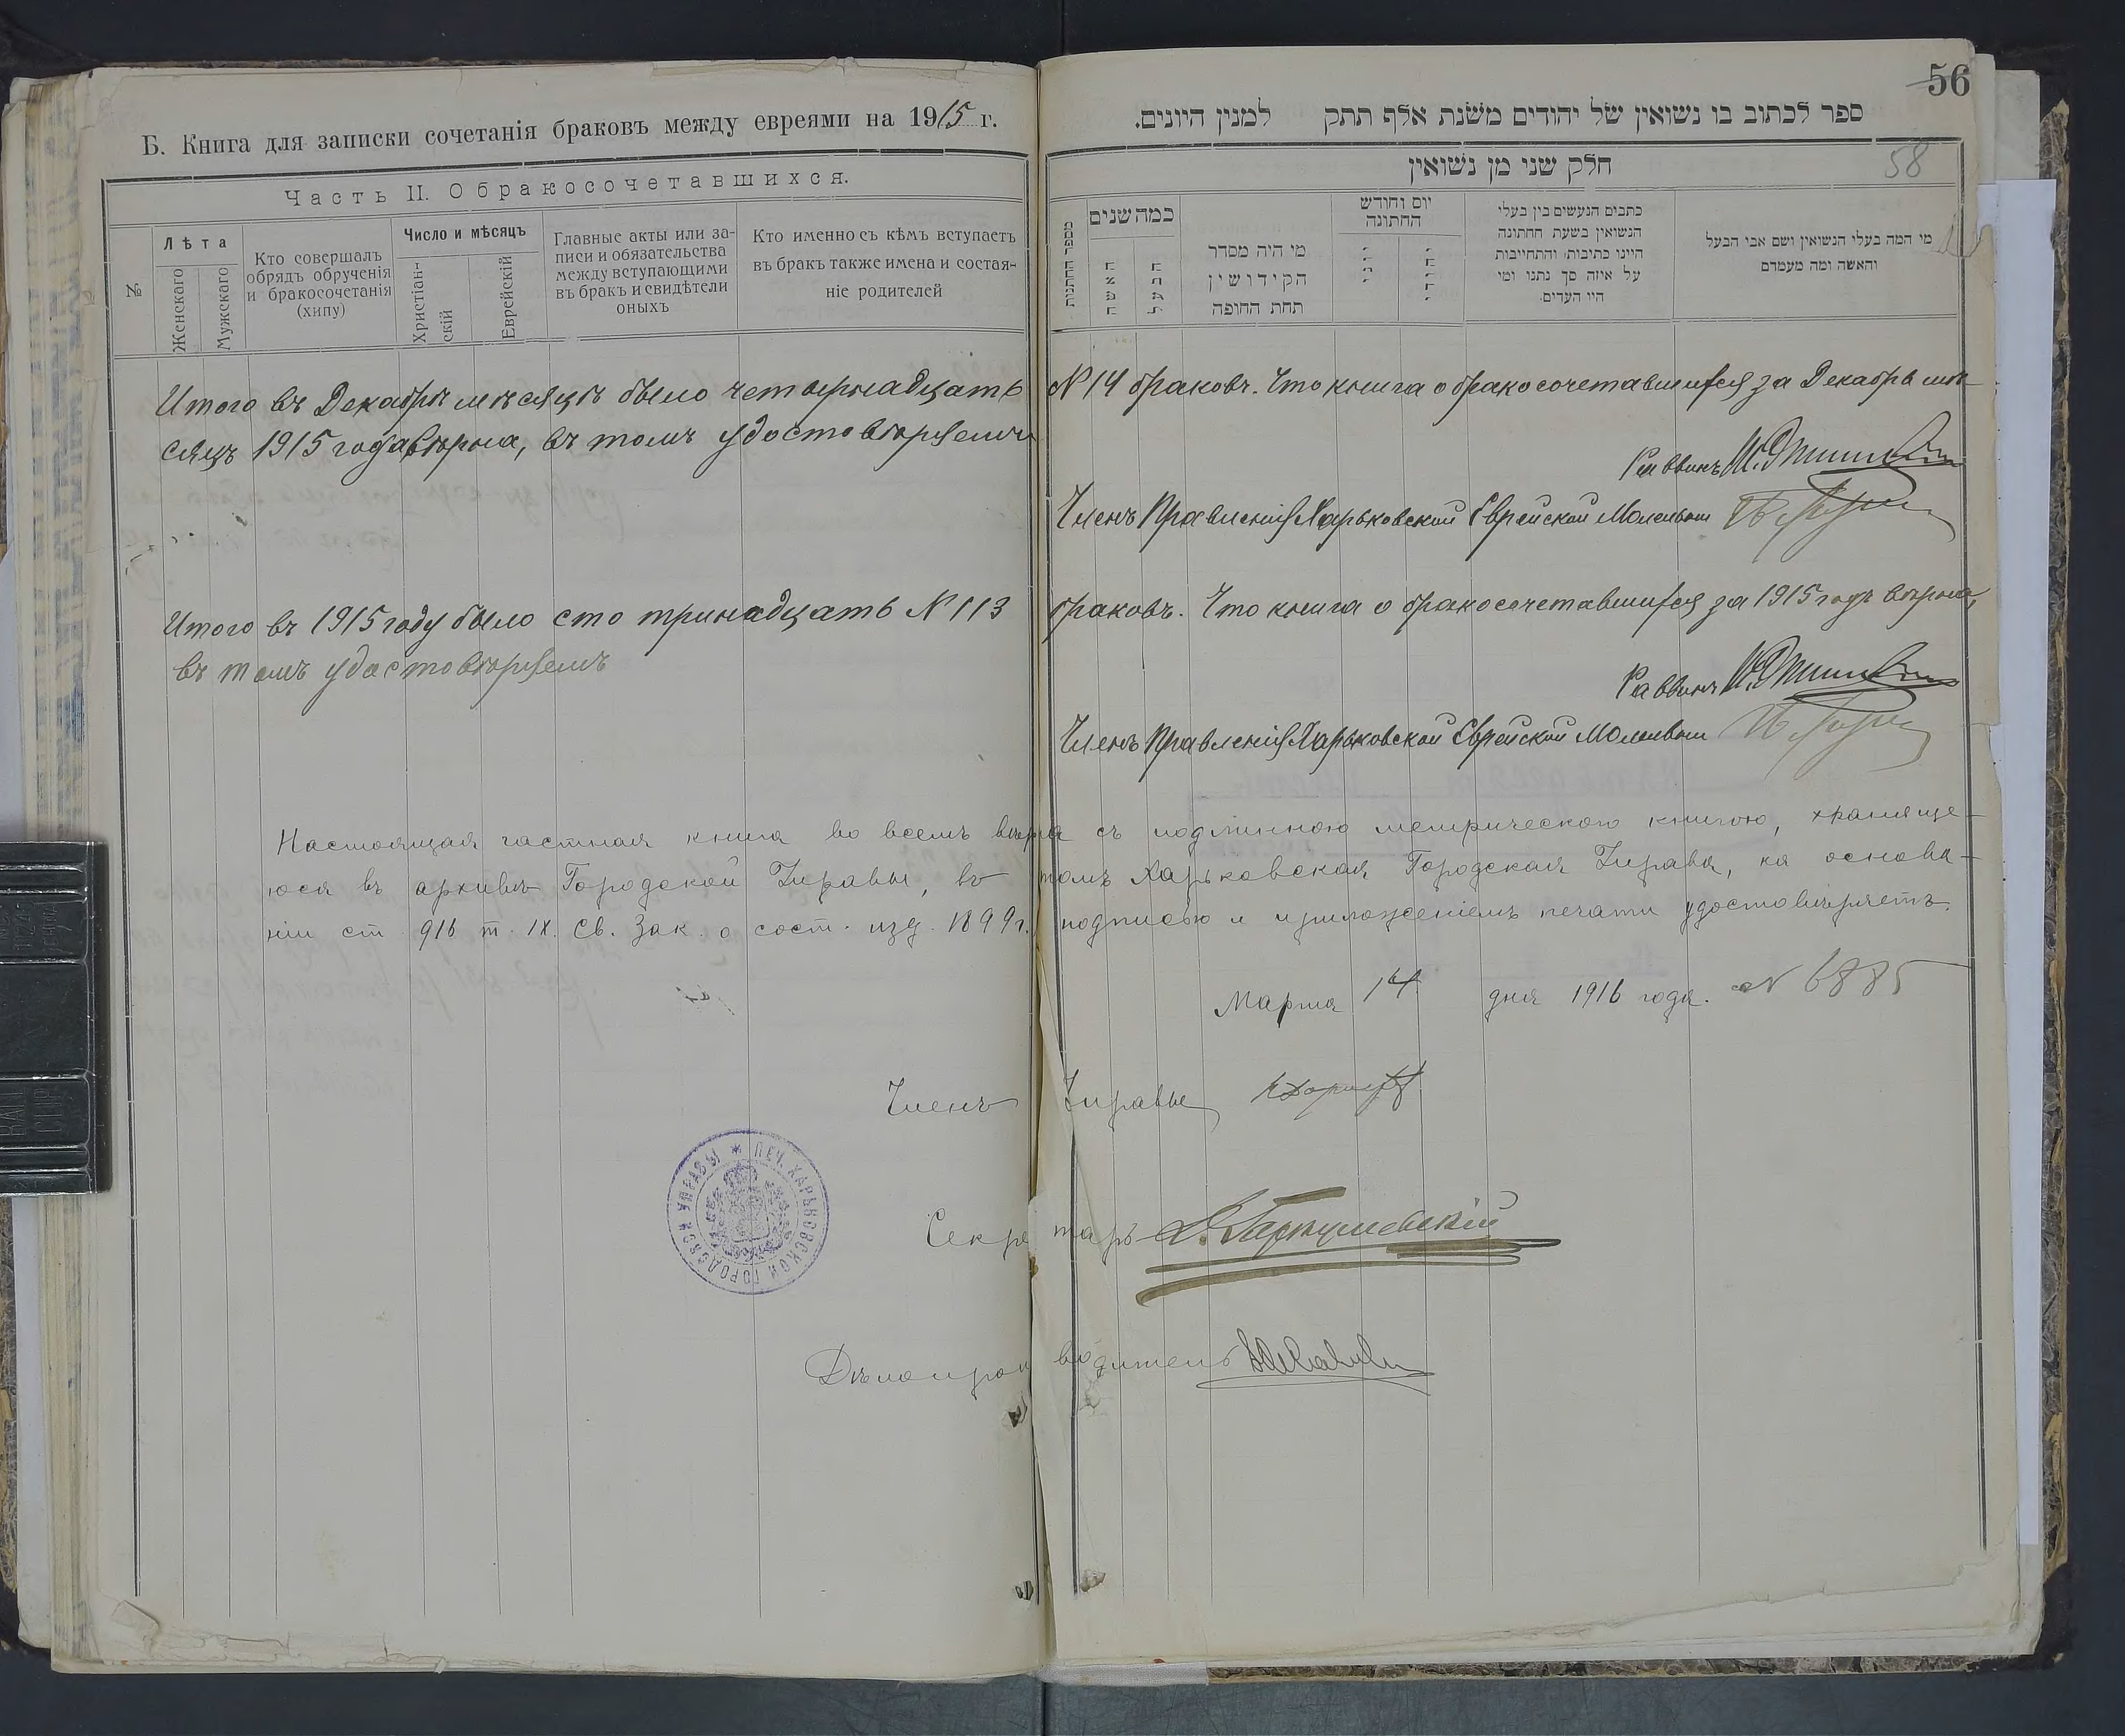 56
58
Б. Книга для записки сочетанія браковъ между евреями на 1915 г.
ספר לכתוב בו נשואין של יהודים משנת אלף תתק למנין היונים.
Часть II. О бракосочетавшихся.
חלק שני מן נשואין
№
Лѣта
Женскаго
Мужскаго
Кто совершалъ
обрядъ обрученія
и бракосочетанія
(хипу)
Число и мѣсяцъ
Христіан-
скій
Еврейскій
Главные акты или за-
писи и обязательства
между вступающими
въ бракъ и свидѣтели
оныхъ
Кто именно съ кѣмъ вступаетъ
въ бракъ также имена и состоя-
ніе родителей
מספר החתונות
כמה שנים
האשה
הבעל
מי היה מסדר
הקידושין
תחת החופה
יום וחודש
החתונה
כתבים הנעשים בין בעלי
הנשואין בשעת החתונה
היינו כתיבות והתחייבות
על איזה סך נתנו ומי
היו העדים.
מי המה בעלי הנשואין ושם אבי הבעל
והאשה ומה מעמדם
Итого въ Декабрѣ мѣсяцѣ было четырнадцать № 14 браковъ. Что книга о бракосочетавшихся за Декабрь мѣ-
сяцъ 1915 года вѣрна, въ томъ удостовѣряемъ
Раввинъ
Членъ Правленія Харьковской Еврейской Молельни
Итого въ 1915 году было сто тринадцать № 113 браковъ. Что книга о бракосочетавшихся за 1915 годъ вѣрна,
въ томъ удостовѣряемъ
Раввинъ
Членъ Правленія Харьковской Еврейской Молельни
Настоящая частная книга во всемъ вѣрна съ подлинною метрическою книгою, храняще-
юся въ архивѣ Городской Управы, въ томъ Харьковская Городская Управа, на основа-
ніи ст 916 т. IX. Св. Зак. о сост. изд. 1899 г. подписью и приложеніемъ печати удостовѣряетъ.
Марта 14 дня 1916 года. № 6885
Членъ Управы
ПЕЧ. ХАРЬКОВСКОЙ ГОРОДСКОЙ УПРАВЫ
Секретарь
Дѣлопроизводитель